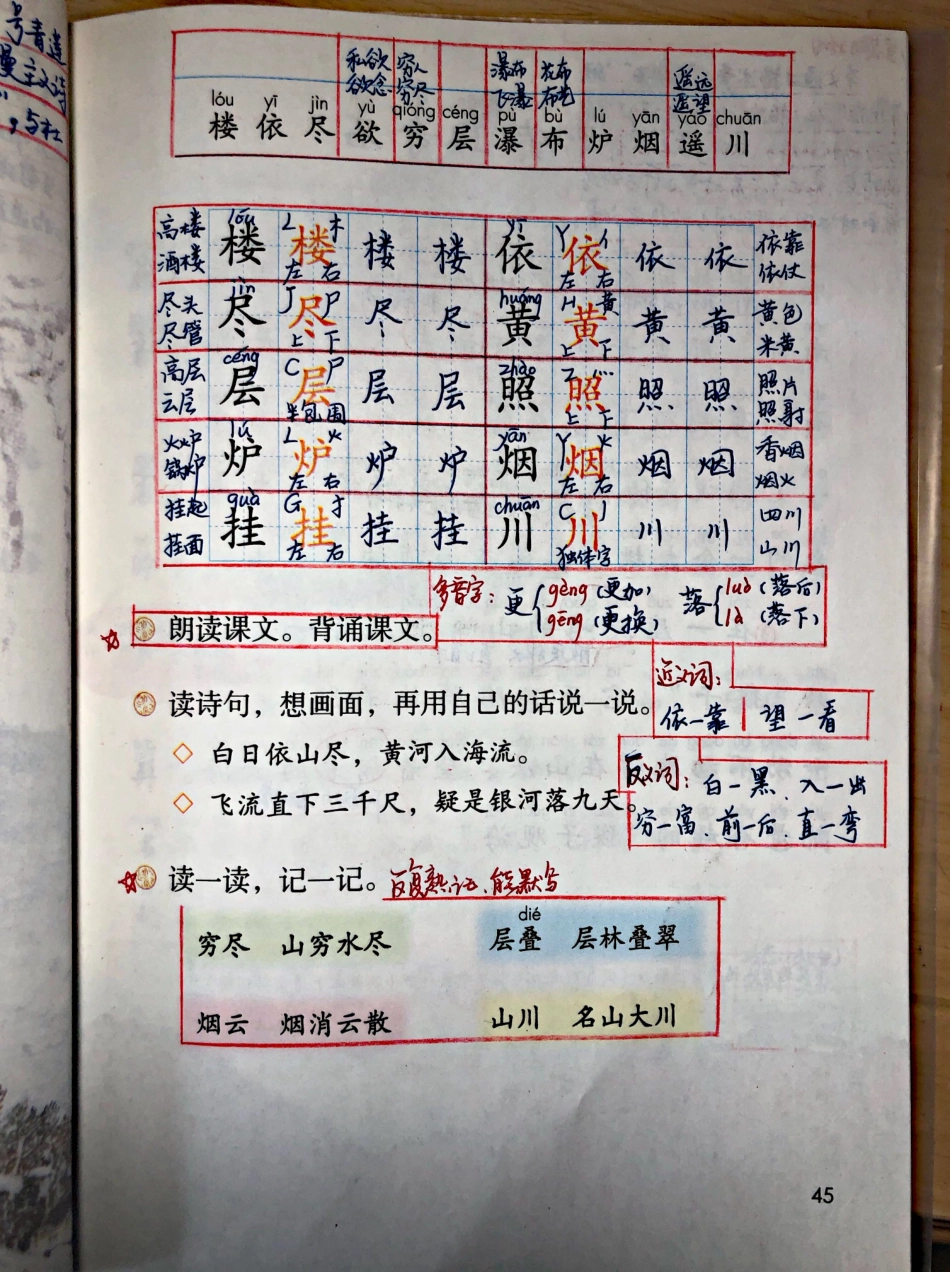 号青莲
漫主义诗
，与杜
私欲 穷人 瀑布 花布 遥远
欲念 穷尽 飞瀑 布艺 遥望
lóu yī jìn yù qióng céng pù bù lú yān yáo chuān
楼 依 尽 欲 穷 层 瀑 布 炉 烟 遥 川
高楼 lóu L 木 yī Y 亻 依靠
酒楼 楼 楼 楼 楼 依 依 依 依 依仗
左 右 左 右
尽头 jìn J 尸 huáng H 黄 黄色
尽管 尽 尽 尽 尽 黄 黄 黄 黄 米黄
上 下 上 下
高层 céng C 尸 zhào Z 灬 照片
云层 层 层 层 层 照 照 照 照 照射
半包围 上 下
火炉 lú L 火 yān Y 火 香烟
锅炉 炉 炉 炉 炉 烟 烟 烟 烟 烟火
左 右 左 右
挂起 guà G 扌 chuān C 丿 四川
挂面 挂 挂 挂 挂 川 川 川 川 山川
左 右 独体字
多音字： 更 gèng（更加） 落 luò（落后）
gēng（更换） là（落下）
朗读课文。背诵课文。
近义词：
读诗句，想画面，再用自己的话说一说。
依—靠 望—看
白日依山尽，黄河入海流。
反义词： 白—黑、入—出
飞流直下三千尺，疑是银河落九天。
穷—富、前—后、直—弯
读一读，记一记。 反复熟记、能默写
dié
穷尽 山穷水尽 层叠 层林叠翠
烟云 烟消云散 山川 名山大川
45